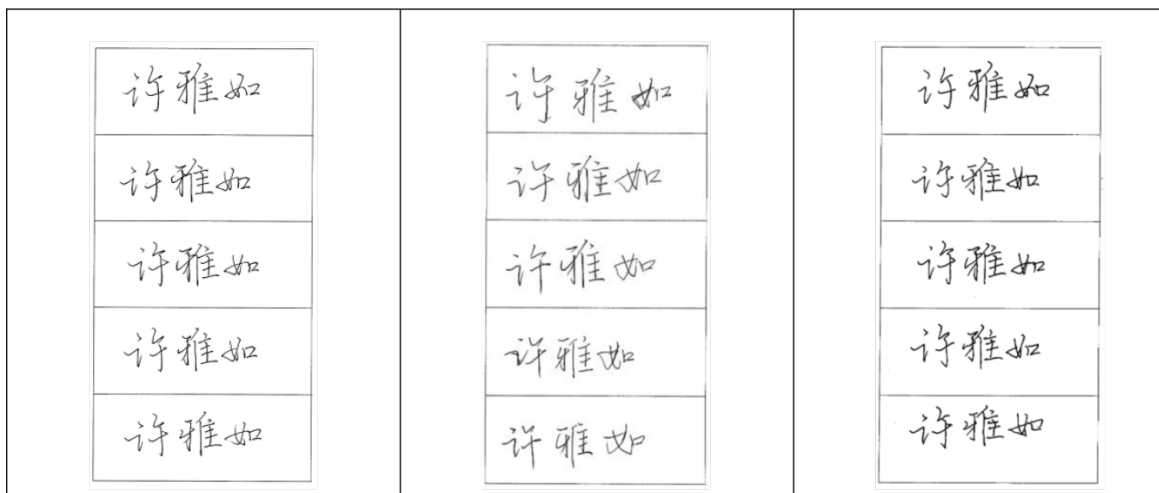 许雅如 许雅如 许雅如
许雅如 许雅如 许雅如
许雅如 许雅如 许雅如
许雅如 许雅如 许雅如
许雅如 许雅如 许雅如